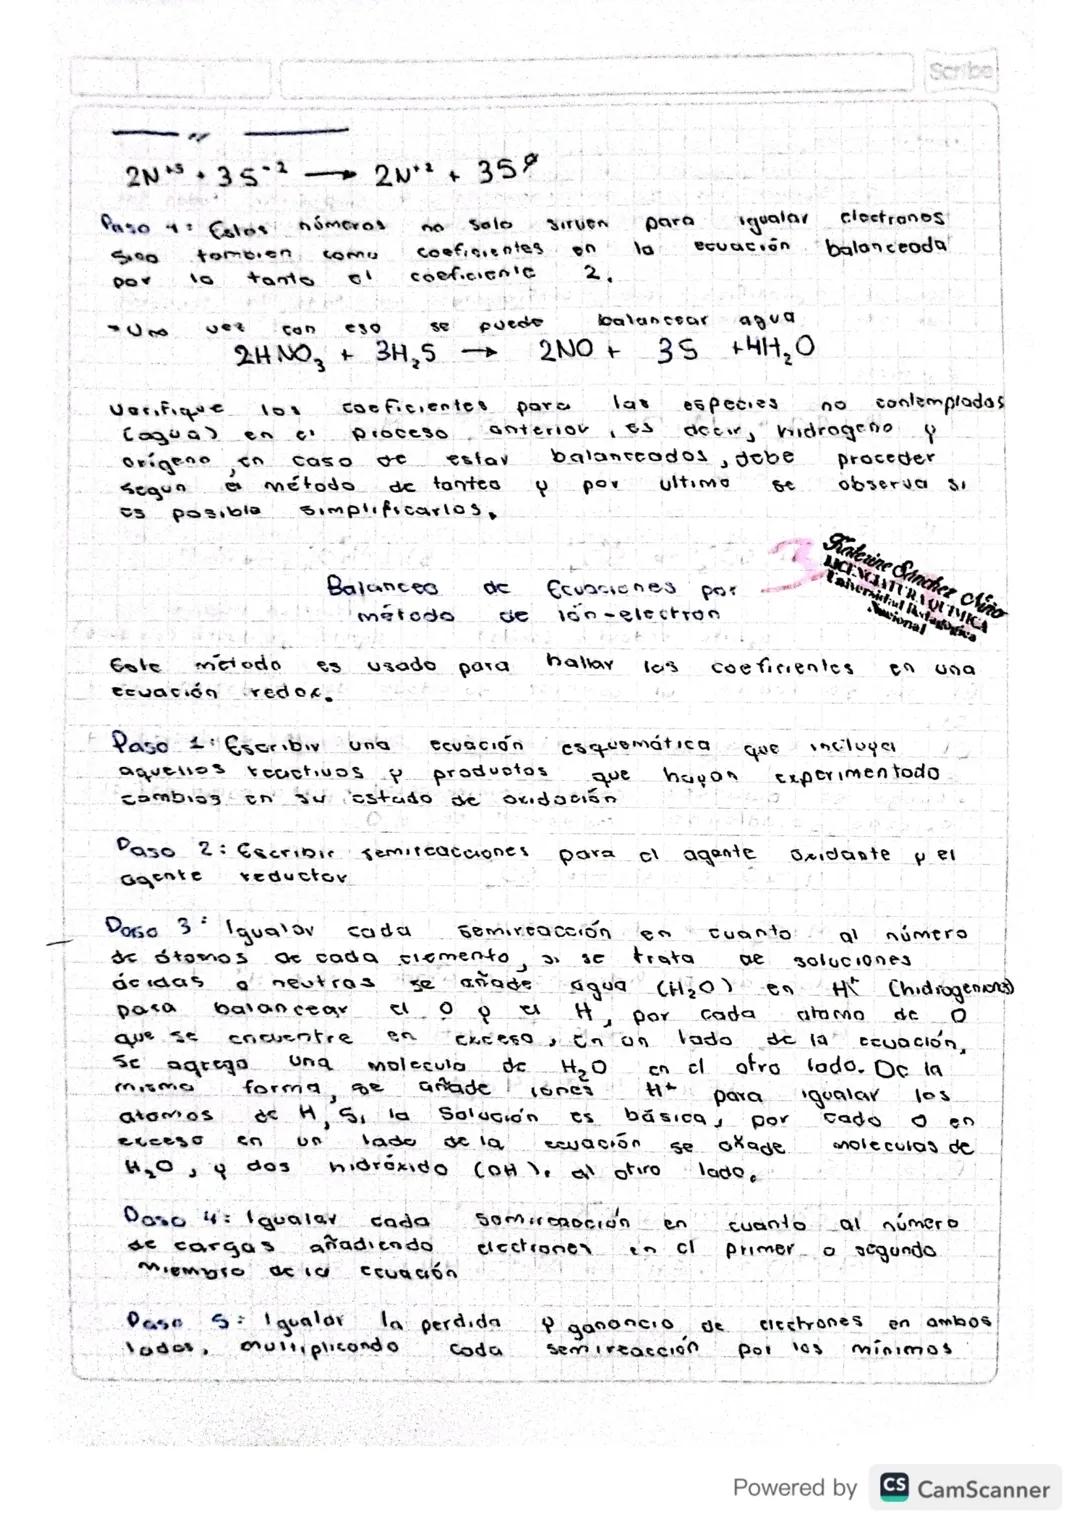 Scribe
2N⁺⁵ + 3S⁻² → 2N⁺² + 3S⁰
Paso 4: Estos números no solo sirven para igualar electrones
sino tambien como coeficientes en la ecuación balanceada
por lo tanto el coeficiente 2.
Una vez con eso se puede balancear agua
2HNO₃ + 3H₂S → 2NO + 3S +4H₂O
Verifique los coeficientes para las especies no contempladas
(agua) en el proceso anterior, es decir, hidrogeno y
origeno, en caso de estar balanceados, debe proceder
segun el método de tanteo y por ultimo se observa si
es posible simplificarlos.
3
Katerine Sánchez Niño
LICENCIATURA QUIMICA
Universidad Pedagógica
Nacional
Balanceo de Ecuaciones por
método de ión-electron
Este método es usado para hallar los coeficientes en una
ecuación redox.
Paso 1: Escribir una ecuación esquemática que incluya
aquellos reactivos y productos que hayan experimentado
cambios en su estado de oxidación
Paso 2: Escribir semireacciones para el agente oxidante y el
agente reductor
Paso 3: Igualar cada semireacción en cuanto al número
de átomos de cada elemento, si se trata de soluciones
ácidas o neutras se añade agua (H₂O) en H⁺ (hidrogeniones)
para balancear el O y el H, por cada atomo de O
que se encuentre en exceso, en un lado de la ecuación,
se agrega una molecula de H₂O en el otro lado. De la
misma forma, se añade iones H⁺ para igualar los
atomos de H, Si la Solución es básica, por cada O en
exceso en un lado de la ecuación se añade moleculas de
H₂O, y dos hidróxido (OH), al otro lado.
Paso 4: Igualar cada semireacción en cuanto al número
de cargas añadiendo electrones en el primer o segundo
miembro de la ecuación
Paso 5: Igualar la perdida y ganancia de electrones en ambos
lados, multiplicando cada semireacción por los mínimos
Powered by CS CamScanner